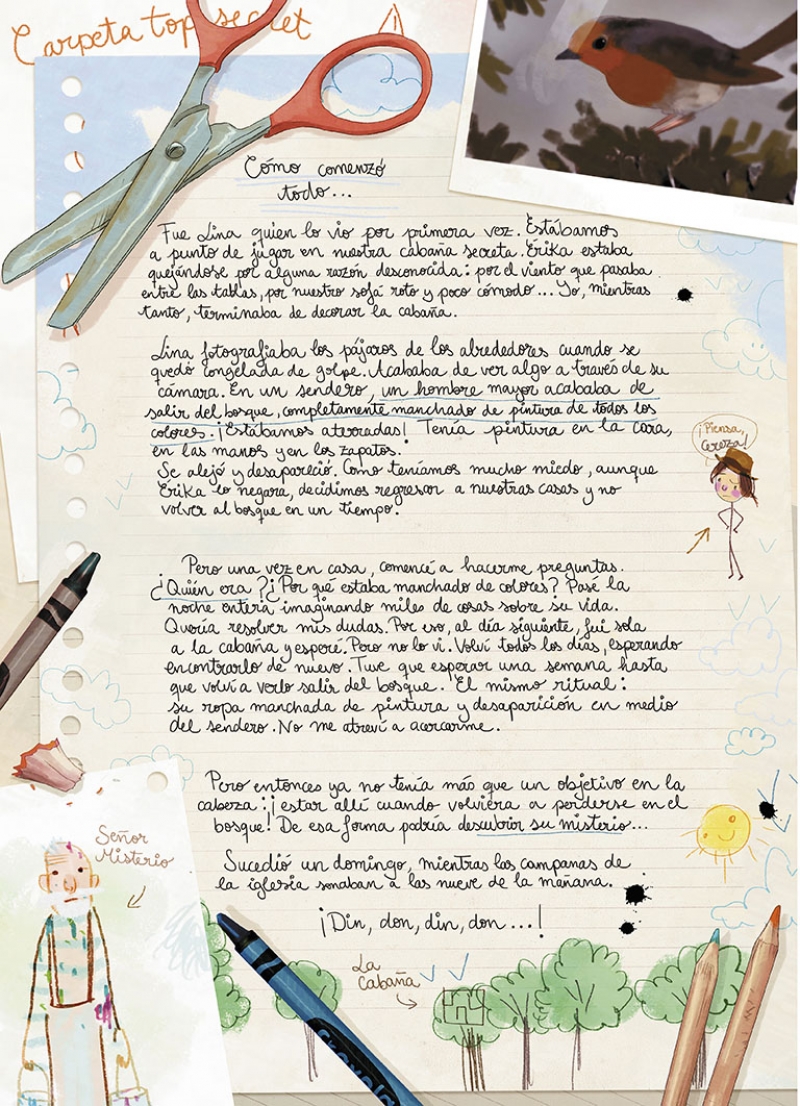 Carpeta top secret
Cómo comenzó
todo...
Fue Lina quien lo vio por primera vez. Estábamos
a punto de jugar en nuestra cabaña secreta. Erika estaba
quejándose por alguna razón desconocida: por el viento que pasaba
entre las tablas, por nuestro sofá roto y poco cómodo... Yo, mientras
tanto, terminaba de decorar la cabaña.
Lina fotografiaba los pájaros de los alrededores cuando se
quedó congelada de golpe. Acababa de ver algo a través de su
cámara. En un sendero, un hombre mayor acababa de
salir del bosque, completamente manchado de pintura de todos los
colores. ¡Estábamos aterradas! Tenía pintura en la cara,
en las manos y en los zapatos.
Se alejó y desapareció. Como teníamos mucho miedo, aunque
Erika lo negara, decidimos regresar a nuestras casas y no
volver al bosque en un tiempo.
¡Piensa,
Cereza!
Pero una vez en casa, comencé a hacerme preguntas.
¿Quién era? ¿Por qué estaba manchado de colores? Pasé la
noche entera imaginando miles de cosas sobre su vida.
Quería resolver mis dudas. Por eso, al día siguiente, fui sola
a la cabaña y esperé. Pero no lo vi. Volví todos los días, esperando
encontrarlo de nuevo. Tuve que esperar una semana hasta
que volví a verlo salir del bosque. El mismo ritual:
su ropa manchada de pintura y desaparición en medio
del sendero. No me atreví a acercarme.
Pero entonces ya no tenía más que un objetivo en la
cabeza: ¡estar allí cuando volviera a perderse en el
bosque! De esa forma podría descubrir su misterio...
Sucedió un domingo, mientras las campanas de
la iglesia sonaban a las nueve de la mañana.
¡Din, don, din, don...!
Señor
Misterio
La
cabaña